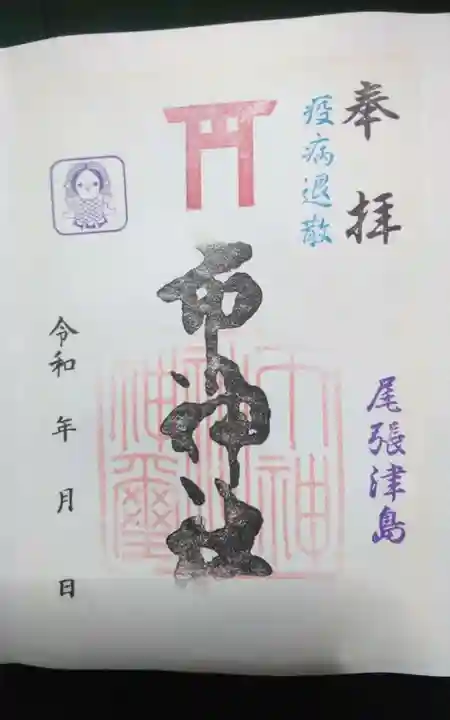 奉拝
疫病退散
尾張津島
市神社
令和 年 月 日